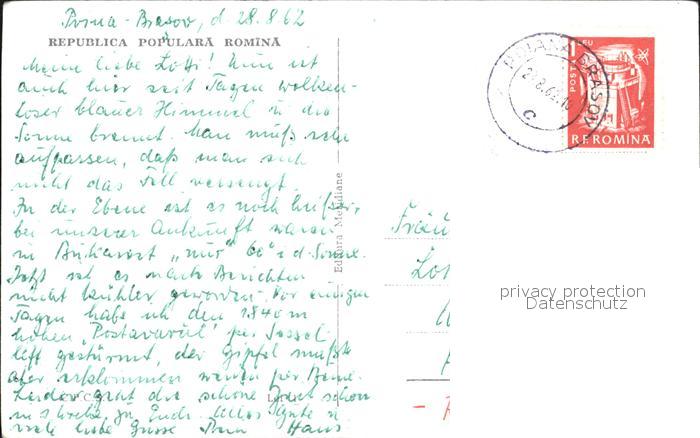 Poiana-Brașov, d. 28.8.62
REPUBLICA POPULARĂ ROMÎNĂ
Meine liebe Lotti! Nun ist
auch hier seit Tagen wolken-
loser blauer Himmel u. die
Sonne brennt. Man muß sehr
aufpassen, daß man sich
nicht das Fell versengt.
In der Ebene ist es noch heißer,
bei unserer Ankunft waren
in Bukarest „nur" 60° i. d. Sonne.
Jetzt ist es nach Berichten
nicht kühler geworden. Vor einigen
Tagen habe ich den 1840 m
hohen „Postavarul" per Sessel-
lift gestürmt, der Gipfel mußte
aber erklommen werden per Beine.
Leider geht die schöne Zeit schon
in 1 Woche zu Ende. Alles Gute u.
viele liebe Grüsse Dein Hans
Editura Meridiane
POIANA BRASOV
28.8.62.10
C
1 LEU
POSTA
R.P.ROMINA
Fräu
Lot
privacy protection
Datenschutz